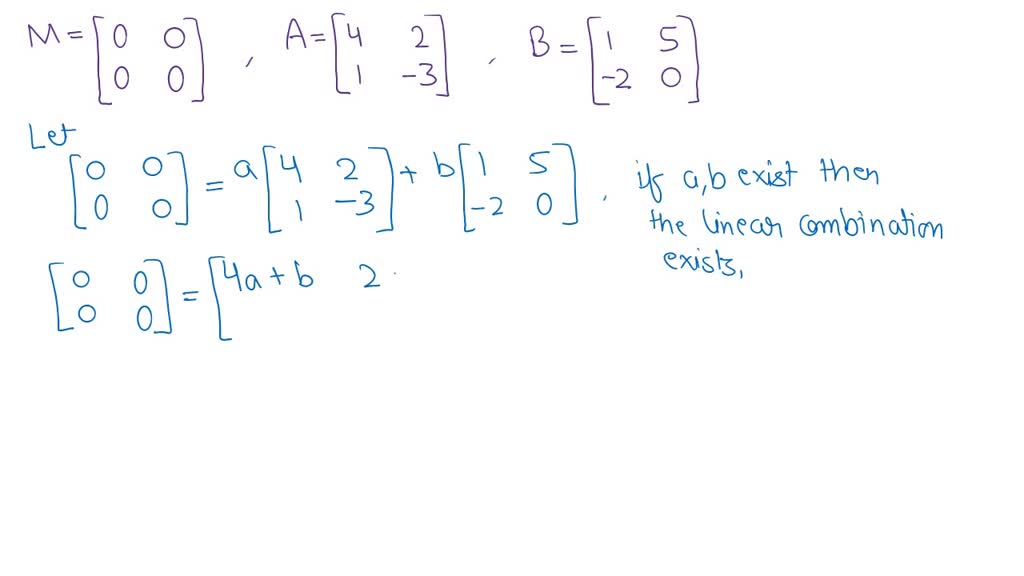 M = [0 0; 0 0] , A = [4 2; 1 -3] , B = [1 5; -2 0]
Let
[0 0; 0 0] = a [4 2; 1 -3] + b [1 5; -2 0] . if a,b exist then
the linear combination
exists,
[0 0; 0 0] = [4a + b 2